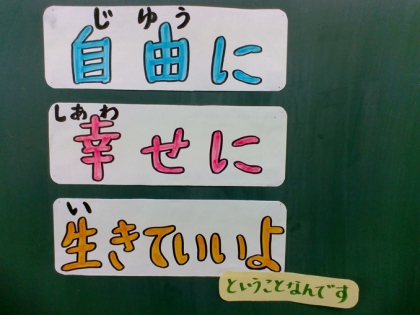 じゆう
自由に
しあわ
幸せに
い
生きていいよ
ということなんです